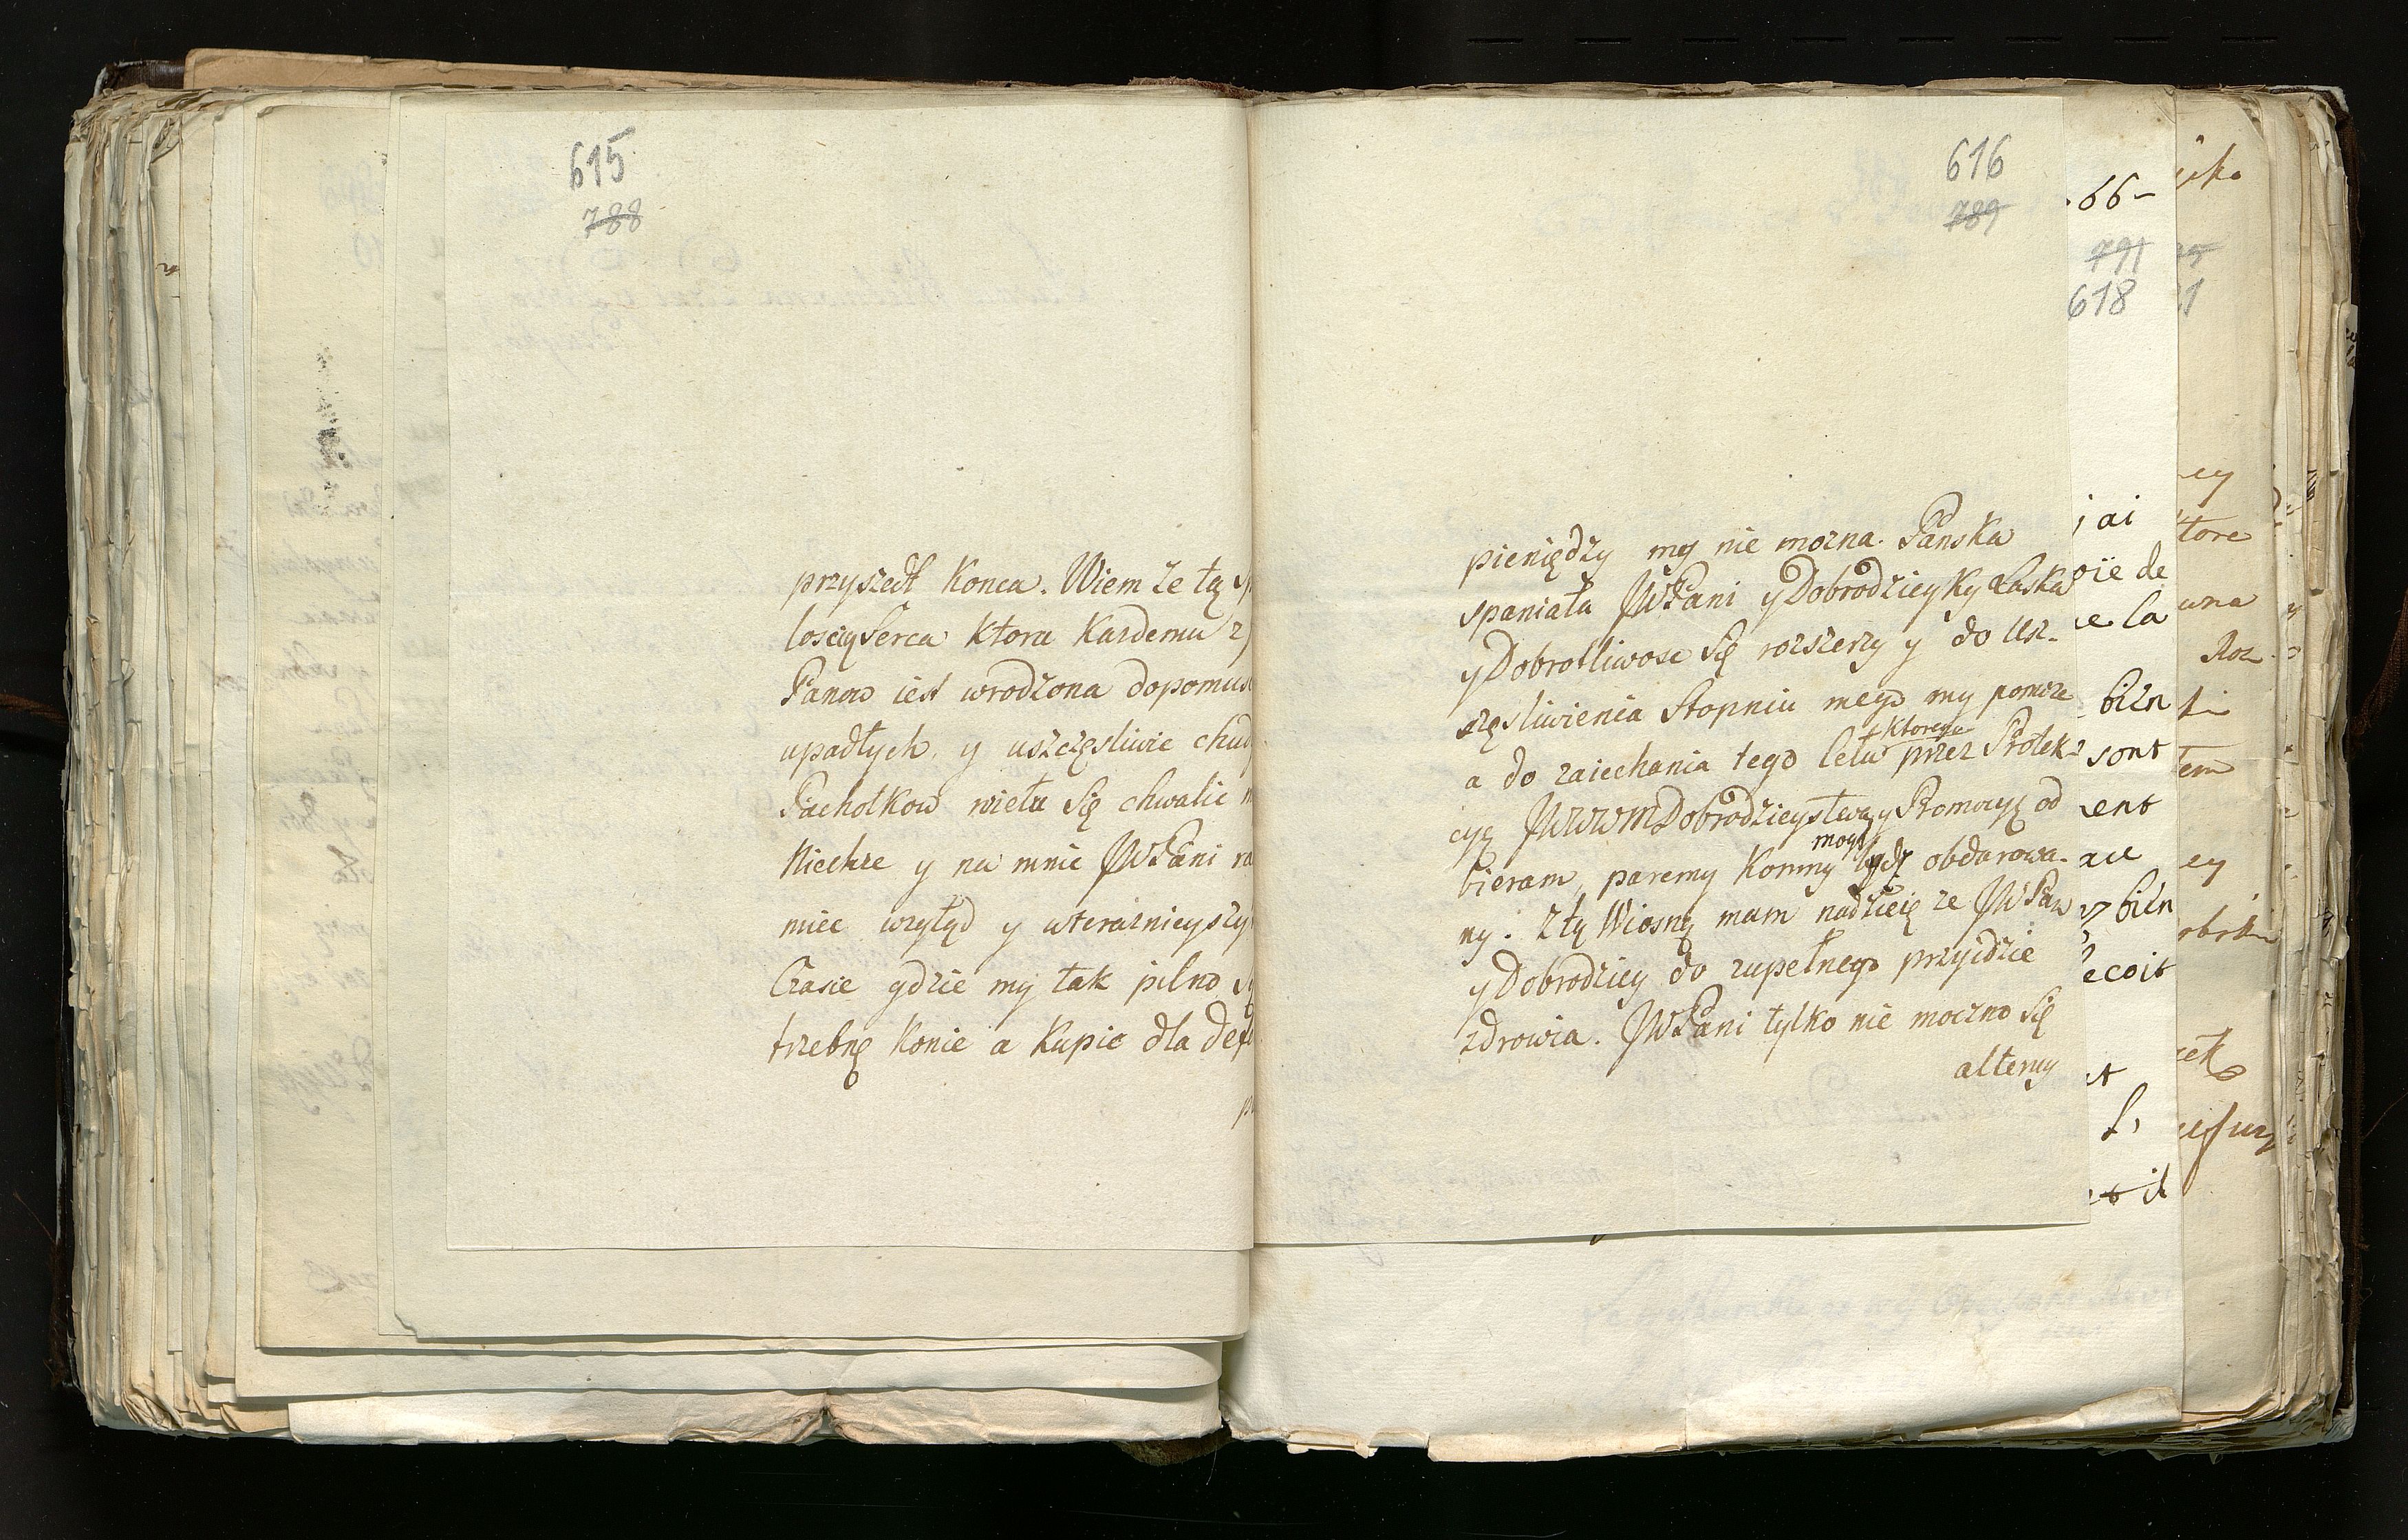 615
788
przyszedł Konca. Wiem ze tą
loscią Serca Ktora Kazdemu z
Panow iest wrodzona dopomuść
upadłych, y uszczęsliwic chud
Pachołkow wielu Się chwalic
Niechze y na mnie JWPani ra
miec wzgłąd y wteraznieyszy
Czasie gdzie my tak pilno
trzebnę Konie a Kupic dla defe
616
789
pieniędzy my nie mozna. Pańska
spaniała JWPani y Dobrodzieyky Łaska
y Dobrotliwosc Się rozszerzy y do Usz-
częsliwienia Stopniu mego my pomoze
a do zaiechania tego letu Ktorego przez Protek-
cyą JWWWMDobrodzieystwa y Promocyą od
bieram, paremy Konmy mogł bydz obdarowa-
ny. Zty Wiosny mam nadzieię ze JWPan
y Dobrodziey do zupełnego przyidzie
zdrowia. JWPani tylko nie moczno Się
alteruy
66-
791
618
ai
oïe de
e la
bien
sont
ent
bien
ecoit
il
tore
una
Roz